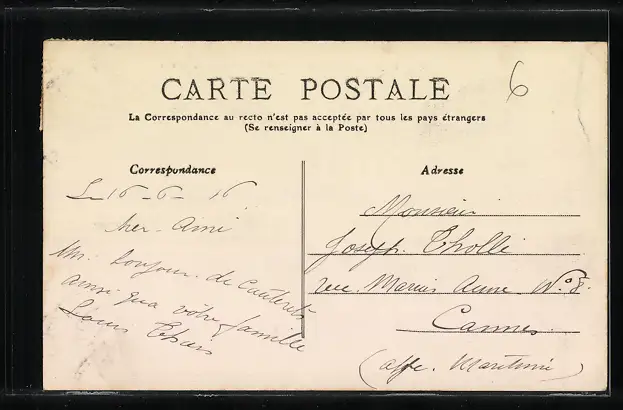 CARTE POSTALE
6
La Correspondance au recto n'est pas acceptée par tous les pays étrangers
(Se renseigner à la Poste)
Correspondance
16-6-16
her-Ami
un. bonjour. de Cauterets
ainsi qua vôtre famille
Louis
Adresse
Monsieur
Joseph. Tholli
rue. Marius Aune N.° 8.
Cannes.
(Alpe. Maritime)